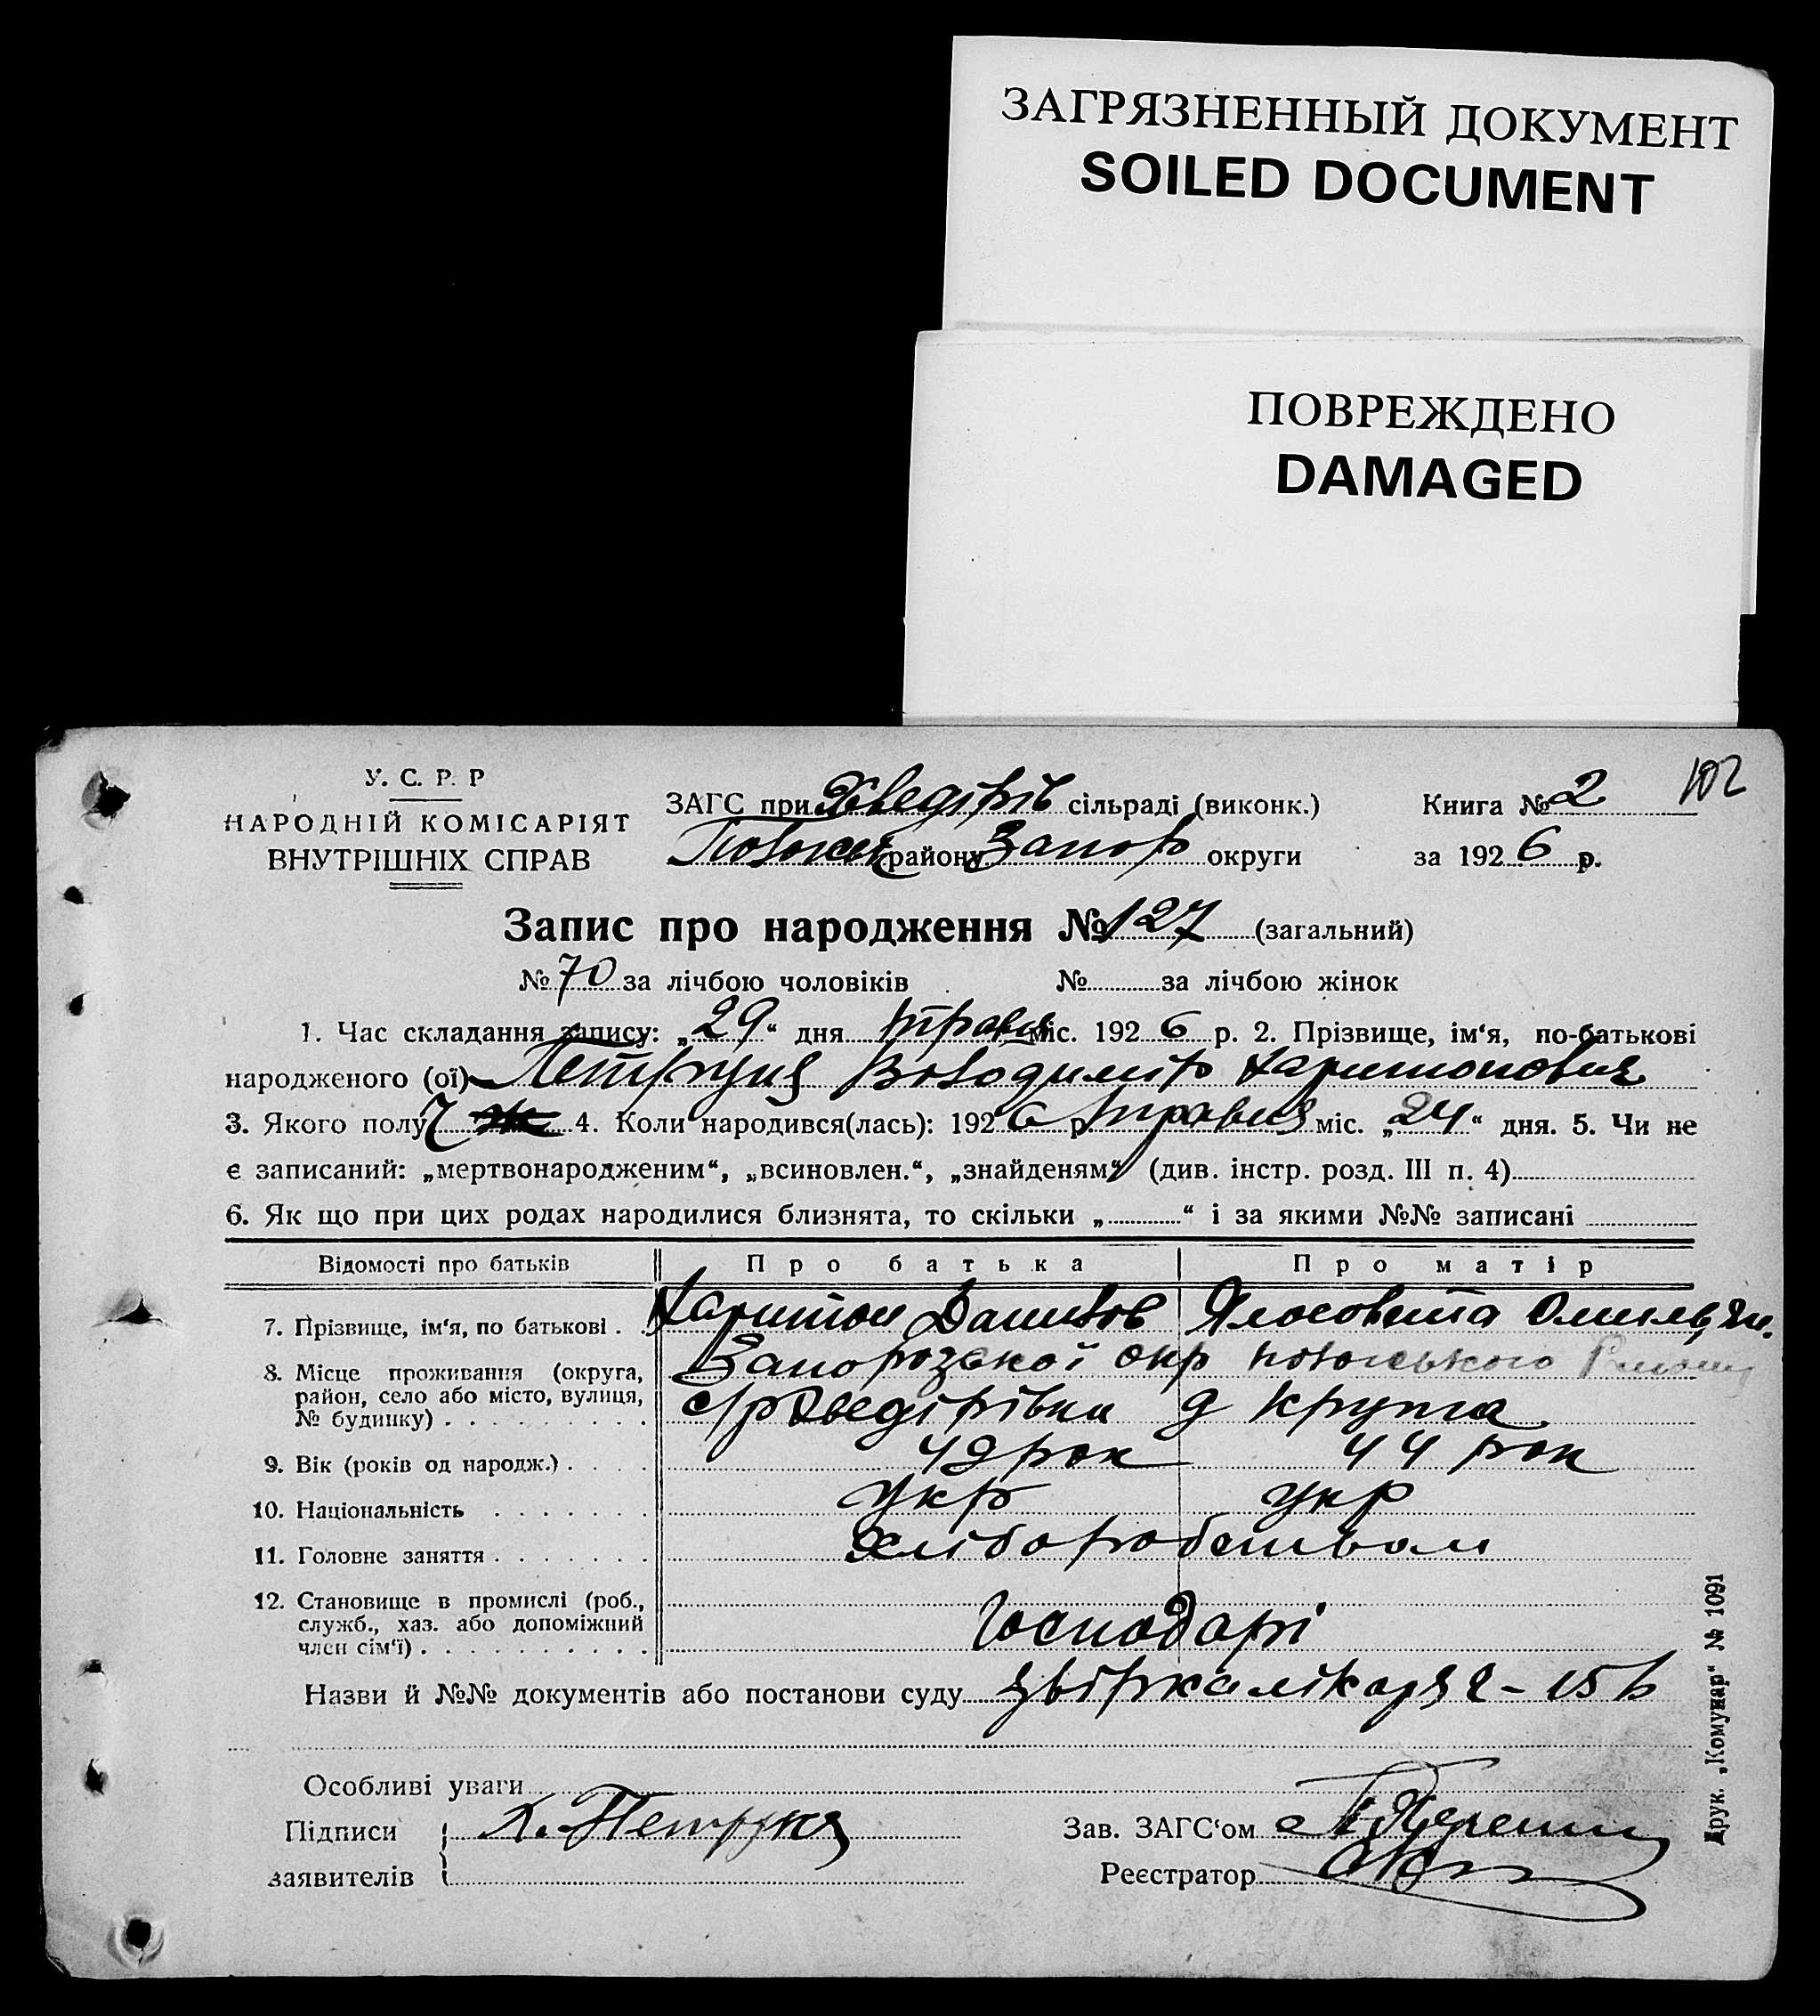 ЗАГРЯЗНЕННЫЙ ДОКУМЕНТ
SOILED DOCUMENT
ПОВРЕЖДЕНО
DAMAGED
102
У. С. Р. Р
НАРОДНІЙ КОМІСАРІЯТ
ВНУТРІШНІХ СПРАВ
ЗАГС при Хведірів сільраді (виконк.) Книга № 2
району Запор округи за 1926 р.
Запис про народження № 127 (загальний)
№ 70 за лічбою чоловіків № за лічбою жінок
1. Час складання запису: „29“ дня травня міс. 1926 р. 2. Прізвище, ім‘я, по-батькові
народженого (ої) Петруня Володимір Харитонович
3. Якого полу Ч 4. Коли народився(лась): 1926 р травня міс. „24“ дня. 5. Чи не
є записаний: „мертвонародженим“, „всиновлен.“, „знайденям“ (див. інстр. розд. III п. 4)
6. Як що при цих родах народилися близнята, то скільки „ “ і за якими №№ записані
Відомості про батьків Про батька Про матір
7. Прізвище, ім‘я, по батькові Харитон Данилов
8. Місце проживання (округа, район, село або місто, вулиця, № будинку) Запорозської окр
с/р Хведірівки д Крута
9. Вік (років од народж.) 49 рок 44 рок
10. Національність укр укр
11. Головне заняття Хліборобством
12. Становище в промислі (роб., служб., хаз. або допоміжний член сім‘ї) Господарі
Назви й №№ документів або постанови суду
Особливі уваги
Підписи заявителів Х. Петруня
Зав. ЗАГС‘ом
Реєстратор
Друк. „Комунар“ № 1091